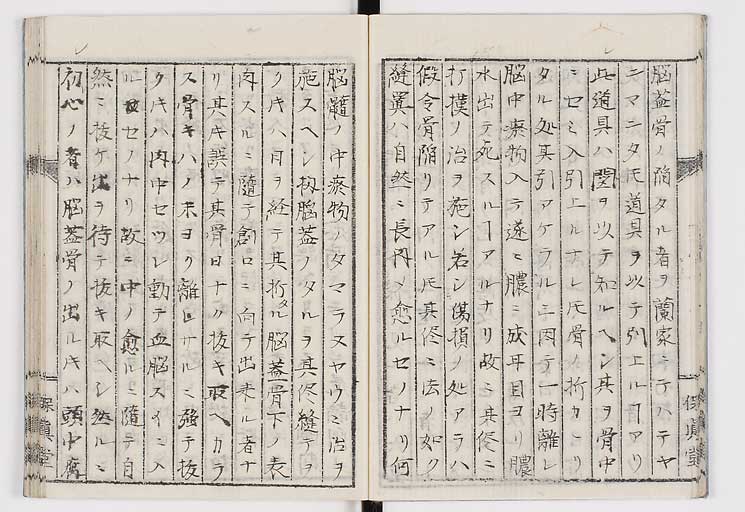 脳蓋骨ノ陥タル者ヲ蘭家ニテハテヤ
ニマニタ𪜈道具ヲ以テ引上ルヿアリ
此道具ハ図ヲ以テ知ルヘシ其ヲ骨中
ニセミ入引上ルナレ𪜈骨ノ折カニリ
タル処其引アケラルニ因テ一時離レ
脳中瘀物入テ遂ニ膿ニ成耳目ヨリ膿
水出テ死スルヿアルナリ故ニ其侭ニ
打撲ノ治ヲ施シ若シ傷損ノ処アラハ
假令骨陥リテアル𪜈其侭ニ法ノ如ク
縫翼ハ自然ニ長肉〆愈ルセノナリ何
脳髓ノ中瘀物ノタマラヌヤウニ治ヲ
施スヘシ扨脳蓋ノタルヲ其侭縫テヲ
クキハ月ヲ経テ其折タル脳蓋骨下ノ表
肉スルニ隨テ創口ニ向テ出来ル者ナ
リ其キ誤テ其骨日ナク抜キ取ヘカラ
ス骨キハノ未ヨリ離レサルニ強テ抜
クキハ肉中セツレ動テ血脳スイニ入
ルセノナリ故ニ中ノ愈ルニ隨テ自
然ニ抜ケ出ヲ待テ抜キ取ヘシ然ルニ
初心ノ者ハ脳蓋骨ノ出ルキハ頭中腐
保眞堂
保眞堂